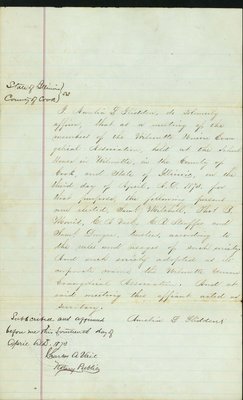 State of Illinois } ss
County of Cook }
I, Amelia F. Gedden, do solemnly
affirm, that at a meeting of the
members of the Wilmette Union Evan-
gelical Association, held at the School
House in Wilmette, in the County of
Cook, and State of Illinois, on the
third day of April, A.D. 1873, for
that purpose, the following persons
were elected,
trustees according to
the rules and usages of such society.
And said society adopted as its
corporate name, the Wilmette Union
Evangelical Association. And at
said meeting this affiant acted as
Secretary.
Amelia F.
Subscribed and affirmed
before me this fourteenth day of
April A.D. 1873
Notary Public